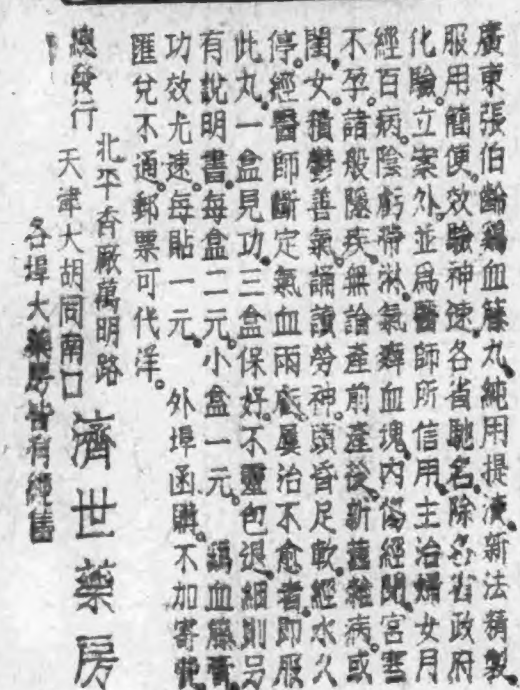 廣東張伯齡鷄血籐丸純用提凍新法精製
服用簡便效驗神速各省馳名除各省政府
化驗立案外並爲醫師所信用主治婦女月
經百病陰虧帶淋氣癖血塊內傷經閉宮寒
不孕諸般隱疾無論產前產後新舊雜病或
閨女積鬱善氣誦讀勞神頭昏足軟經水久
停經醫師斷定氣血兩虧屢治不愈者即服
此丸一盒見功三盒保好不靈包退細則另
有說明書每盒二元小盒一元 鷄血籐膏
功效尤速每貼一元 外埠函購不加寄費
匯兌不通郵票可代洋
總發行 北平香廠萬明路
天津大胡同南口
濟世藥房
各埠大藥房皆有經售